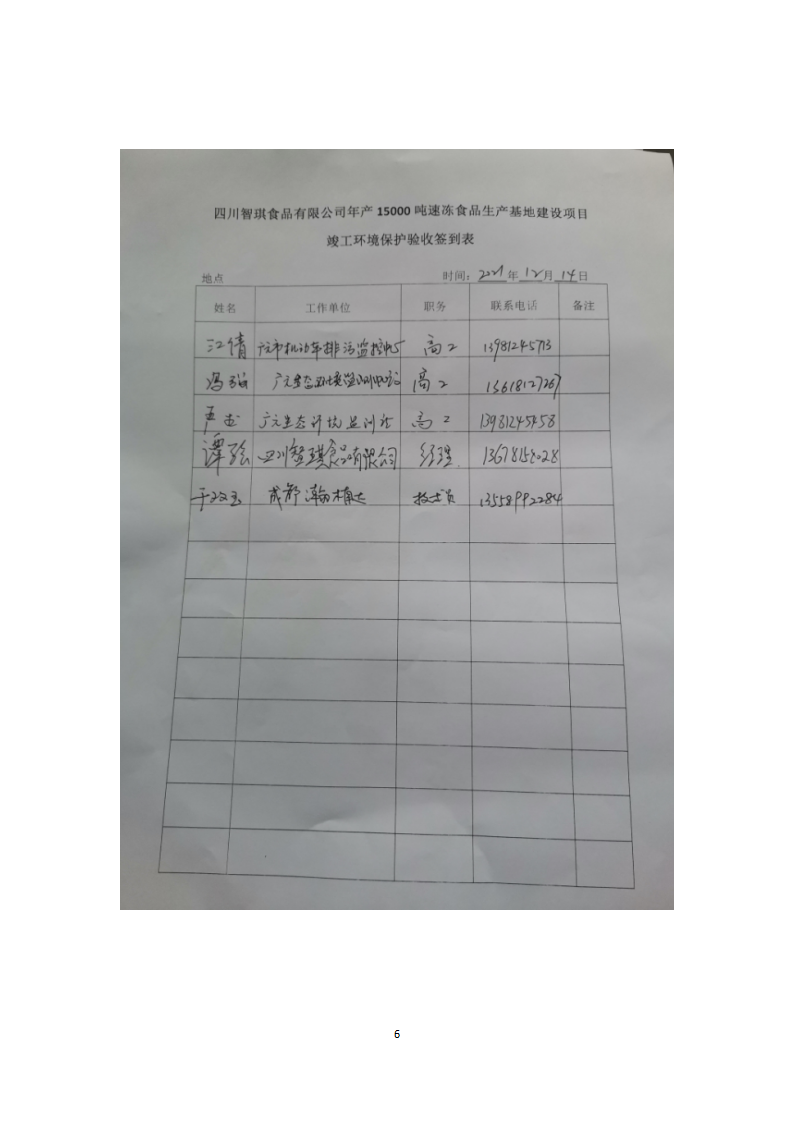 四川智琪食品有限公司年产 15000 吨速冻食品生产基地建设项目
竣工环境保护验收签到表
地点 时间：2021年12月14日
姓名 工作单位 职务 联系电话 备注
江倩 广元市机动车排污监控中心 高工 13981245713
冯强 高工 13618127267
广元生态环境监测站 高工 13981245458
谭 四川智琪食品有限公司 经理 13678158028
于双玉 成都瀚 技术员 13558992284
6